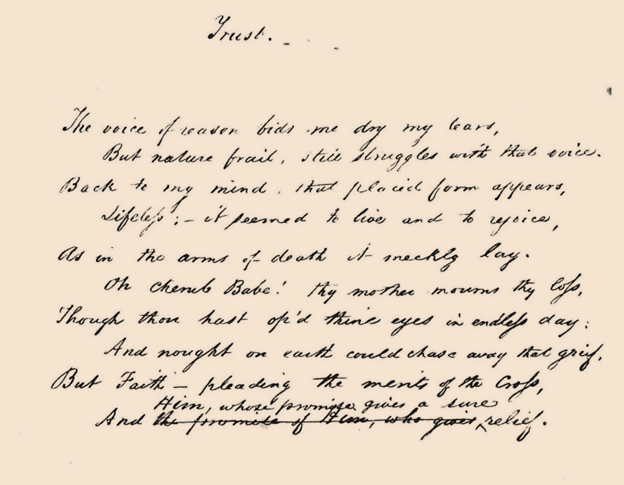 Trust.
The voice of reason bids me dry my tears,
But nature frail, still struggles with that voice.
Back to my mind, that placid form appears,
Lifeless; – it seemed to live and to rejoice,
As in the arms of death it meekly lay.
Oh Cherub Babe! thy mother mourns thy loss,
Though thou hast op'd thine eyes in endless day;
And nought on earth could chase away that grief,
But Faith – pleading the merits of the Cross,
Him, whose promise gives a sure
And the promise of Him, who gives relief.